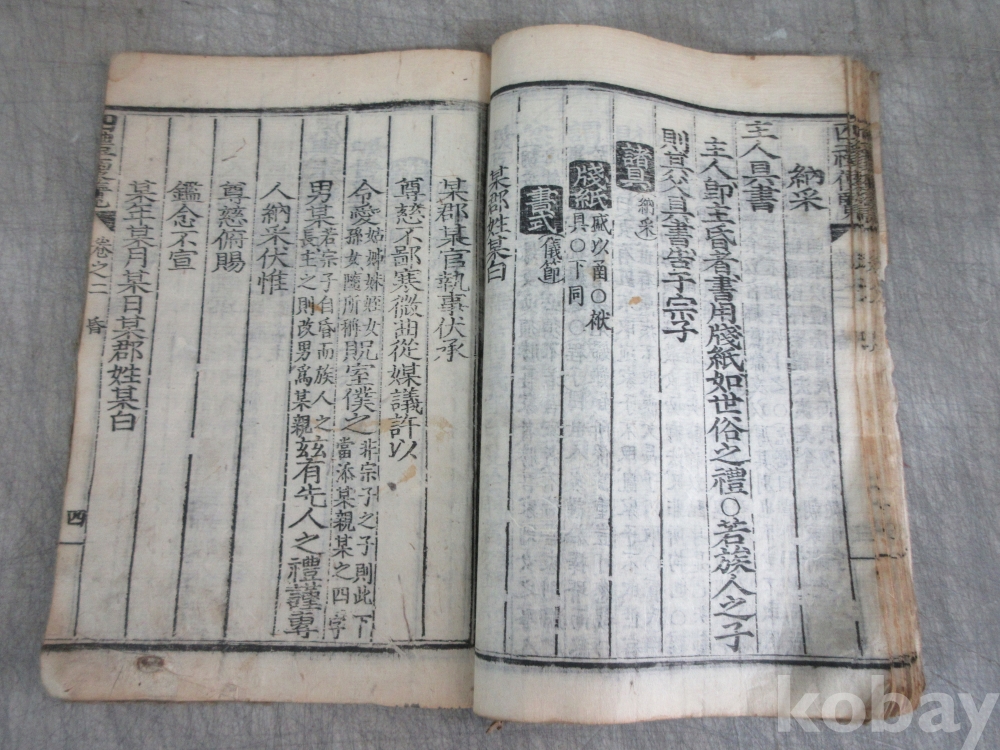 納采
主人具書
主人卽主昏者書用牋紙如世俗之禮○若族人之子
則其父具書告于宗子
諸具 納采
牋紙 或以 具○下同
書式 儀節
某郡姓某白
某郡某官執事伏承
尊慈不鄙寒微曲從媒議許以
令愛 姑姊妹姪女孫女隨所稱 貺室僕之 非宗子之子則此下當添某親某之四字
男某 若宗子自昏而族人之長主之則改男爲某親 玆有先人之禮謹專
人納采伏惟
尊慈俯賜
鑑念不宣
某年某月某日某郡姓某白
四禮便覽
卷之二
昏
四
kobay